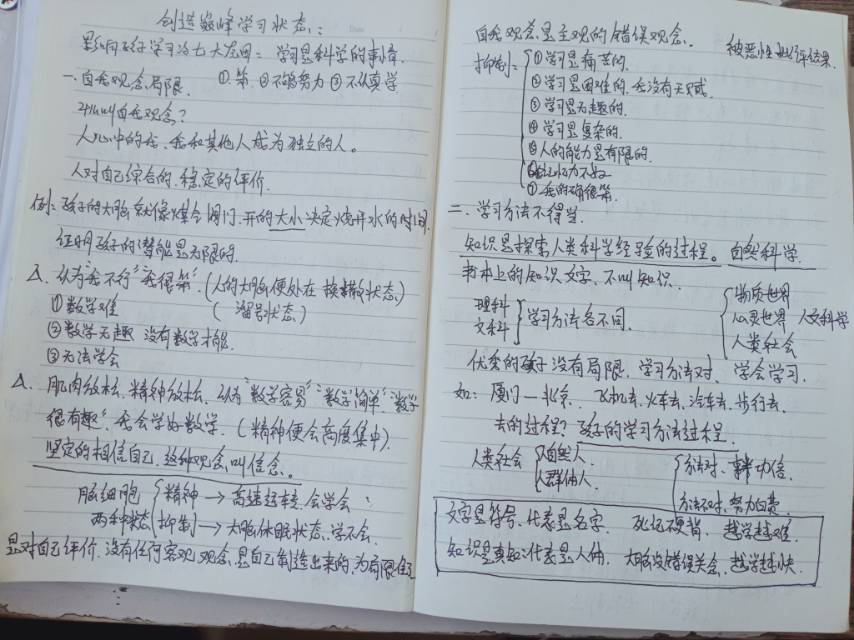 创造巅峰学习状态:
影响孩子学习的七大左因: 学习是科学的事情.
一.自我观念局限. ①笨 ②不够努力 ③不认真学
什么叫自我观念?
人心中的我、我和其他人成为独立的人。
人对自己综合的、稳定的评价.
例: 孩子的大脑就像煤气阀门.开的大小决定烧开水的时间.
证明孩子的潜能是无限的.
认为"我不行""我很笨".(人的大脑便处在 状态)
(溜号状态)
①数学难
②数学无趣 没有数学才能.
③无法学会
肌肉放松、精神放松、认为"数学容易""数学简单""数学
很有趣"、我会学好数学. (精神便会高度集中).
坚定的相信自己、这种观念叫信念。
脑细胞 精神 → 高速运转、会学会
两种状态 抑制 → 大脑休眠状态、学不会.
是对自己评价、没有任何客观观念、是自己制造出来的、为局限
自我观念是主观的错误观念. 被恶性批评结果.
抑制:
①学习是痛苦的.
②学习是困难的、我没有天赋.
③学习是无趣的.
④学习是复杂的.
⑤人的能力是有限的.
⑥我记忆力不好
⑦我的确很笨.
二.学习方法不得当.
知识是探索人类科学经验的过程。 自然科学.
书本上的知识文字、不叫知识.
理科
文科
学习方法各不同.
物质世界
心灵世界 人文科学
人类社会
优秀的孩子没有局限、学习方法对、学会学习.
如: 厦门—北京. 飞机去、火车去、汽车去、步行去.
去的过程? 孩子的学习方法过程.
人类社会 自然人.
群体人.
方法对、事半功倍.
方法不对、努力白费.
文字是符号、代表是名字. 死记硬背、越学越难.
知识是真知、代表是人物. 大脑没错误关念、越学越快.